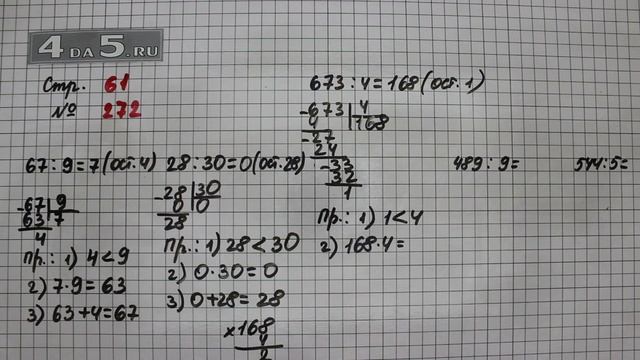 4DA5.RU
Стр. 61
№ 272
67:9=7(ост.4)
-67|9
63|7
4
Пр.: 1) 4<9
2) 7·9=63
3) 63+4=67
28:30=0(ост.28)
-28|30
0|0
28
Пр.: 1) 28<30
2) 0·30=0
3) 0+28=28
673:4=168(ост.1)
-673|4
4|168
-27
24
-33
32
1
Пр.: 1) 1<4
2) 168·4=
×168
4
2
489:9=
544:5=